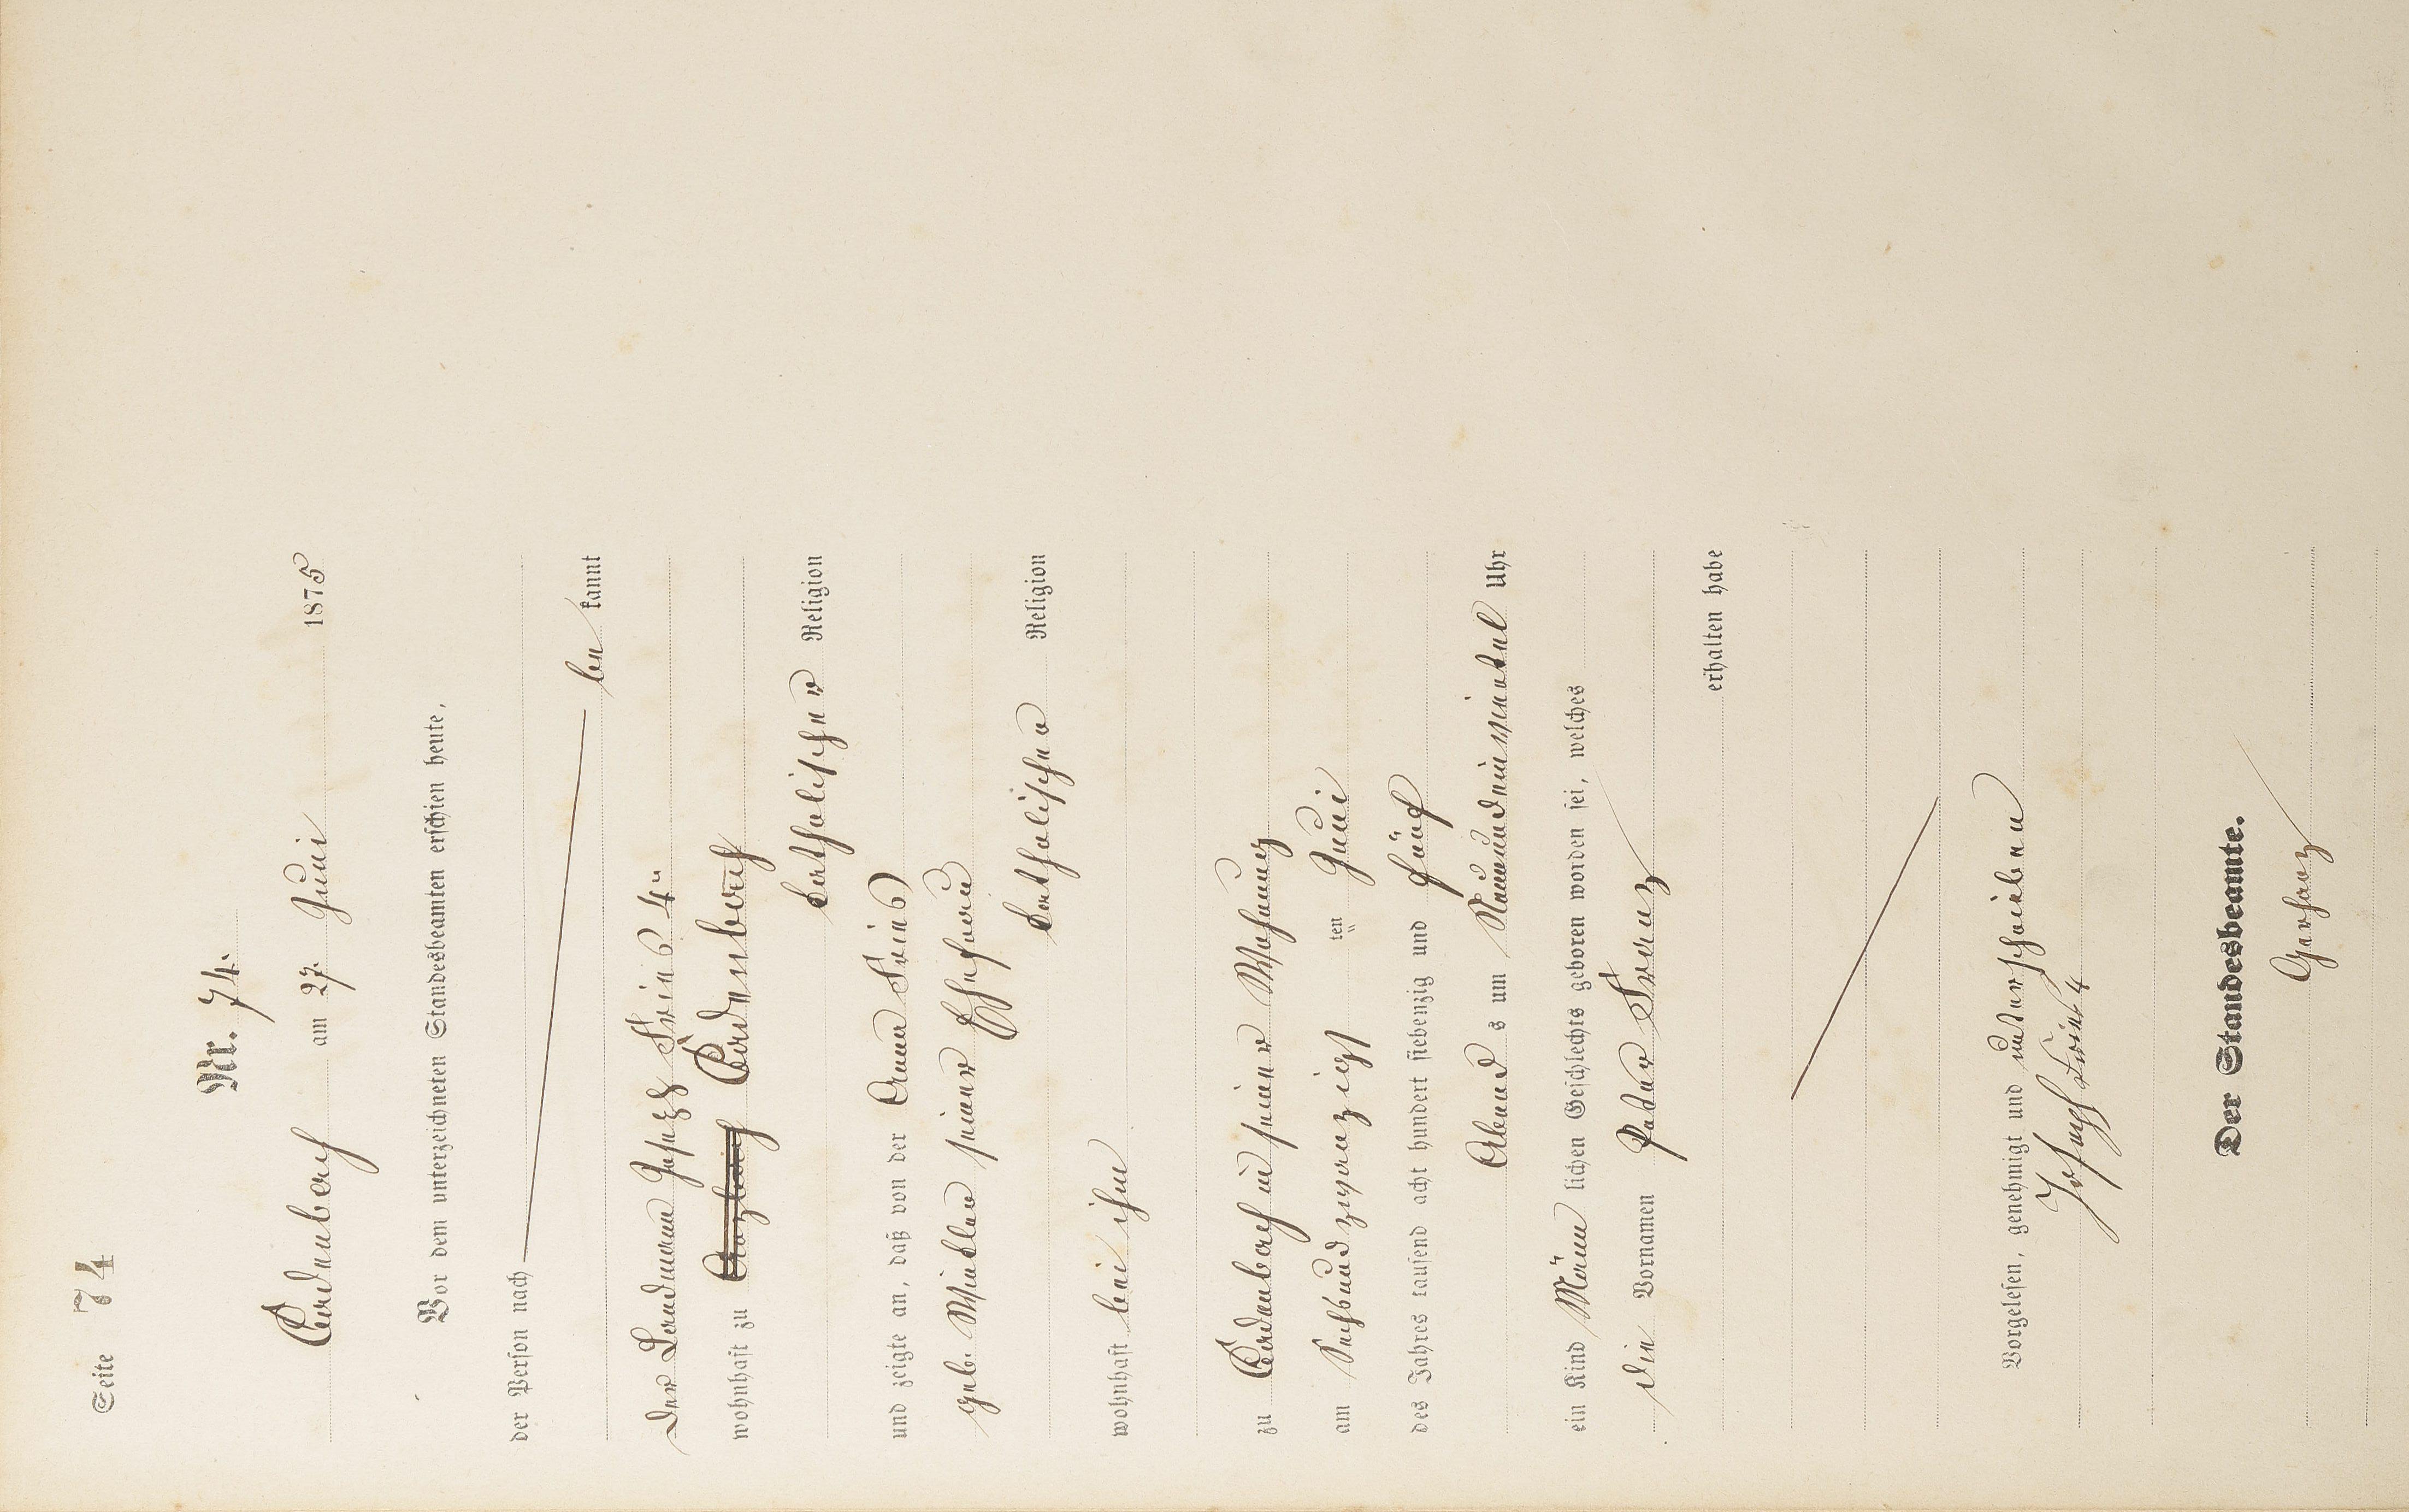 Seite 74
Nr. 74.
Cadenbach am 27. Juni 1875
Vor dem unterzeichneten Standesbeamten erschien heute,
der Person nach
be kannt
der Landmann Joseph Fries 4"
wohnhaft zu Cadenbach
katholischer Religion
und zeigte an, daß von der Anna Fries
geb. seiner Ehefrau
katholischer Religion
wohnhaft bei ihm
zu Cadenbach in seiner Wohnung
am Sechsundzwanzigs ten Juni
des Jahres tausend acht hundert siebenzig und fünf
Abend s um Neununddreiviertel Uhr
ein Kind Männ lichen Geschlechts geboren worden sei, welches
die Vornamen Peter Franz
erhalten habe
Vorgelesen, genehmigt und unterschrieben
Joseph Fries 4
Der Standesbeamte.